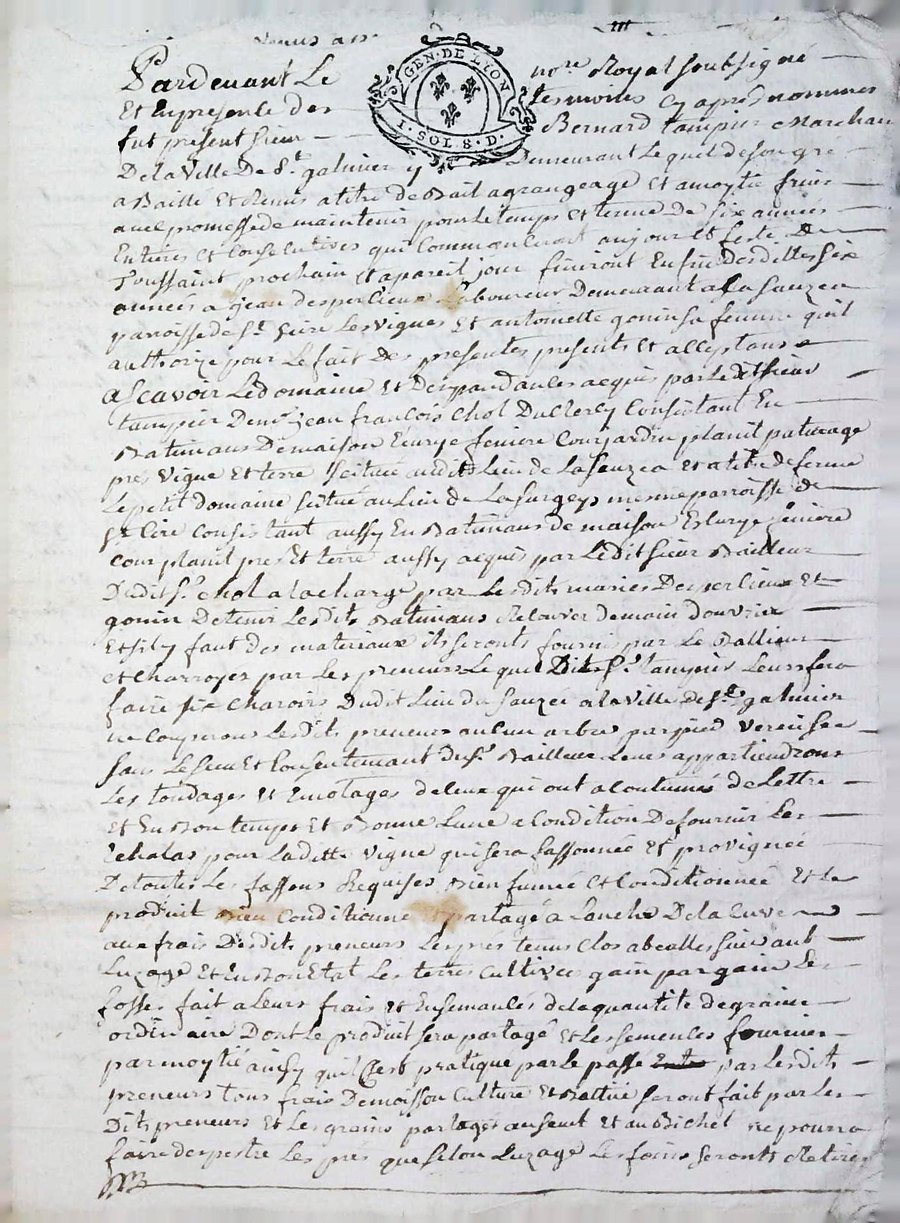 GEN·DE LYON
I·SOL 8·D·
Pardevant Le nore Royal soubsigné
Et En presence des tesmoins cy apres nommes
fut present sieur Bernard tampier Marchan
De la Ville De St galmier y Demeurant Lequel de son gre
a Baille Et Remis a titre de Bail a grangeage Et a moytie fruis
avec promesse de maintenir pour Le temps Et terme De six années
Entieres Et Consecutives qui Commanceront au jour Et feste De
Toussaint prochain Et a pareil jour finiront En fin desdittes six
années a jean desperlieux Laboureur Demeurant a La sauzea
parroisse de St Cire Les Vignes Et antoinette gonin sa femme quil
authorize pour Le fait Des presentes presents Et acceptans
a scavoir Le domaine Et Despandances acquis par Le dit sieur
tampier De mr jean françois Chol Du Clercy Consistant En
Batimans De maison Ecurye feniere Cour jardin planit paturage
prés Vigne Et terre scitué audit Lieu de La sauzea Et a titre de ferme
Le petit domaine scitué au Lieu de La surgeys mesme parroisse de
St Cire Consistant aussy En Batimans de maison Ecurye feniere
Cour planit pres Et terre aussy acquis par Le dit sieur Bailleur
Dudit sr Chol a la charge par Les dits mariés Desperlieux Et
gonin De tenir Les dits Batimans Recouver de main d'ouvrier
Et sil y faut Des materiaux ils seronts fournis par Le Ballieur
et charroyés par Les preneurs Le quel Dit sr tampier Leurs fera
faire six charois Du dit Lieu du sauzéa a la Ville de St galmier
ne Couperons Les dits preneurs aucun arbre par pied Vert ni sec
sans Le sceu Et Consentemant du sr Bailleur Leurs appartiendrons
Les tondages Et Emotages de Ceux qui ont acoutumés de Lettre
Et En Bon temps Et Bonne Lune a Condition De fournir Les
Echalas pour La ditte Vigne qui sera fassonnée Et provignée
De toutes Les fassons Requises Bien fumée Et Conditionnée Et Le
produit Bien Conditionné Et partagé a Lanche De la Cuve
aux frais Desdits preneurs Les prés tenus Clos abeallés suivant
Luzage Et En Bon Etat Les terres Cultivées gain par gain Les
fosses fait a Leurs frais Et Ensemancés de la quantité de graine
ordinaire Dont Le produit sera partagé Et Les semences fournies
par moytié ainsy quil sest pratique par Le passé par Les dits
preneurs tous frais De moisson Culture Et Battue seront fait par Les
Dits preneurs Et Les grains partagés au seuil Et au Bichet ne pourra
faire depestre Les prés que selon Luzage Les foins seronts Retirés